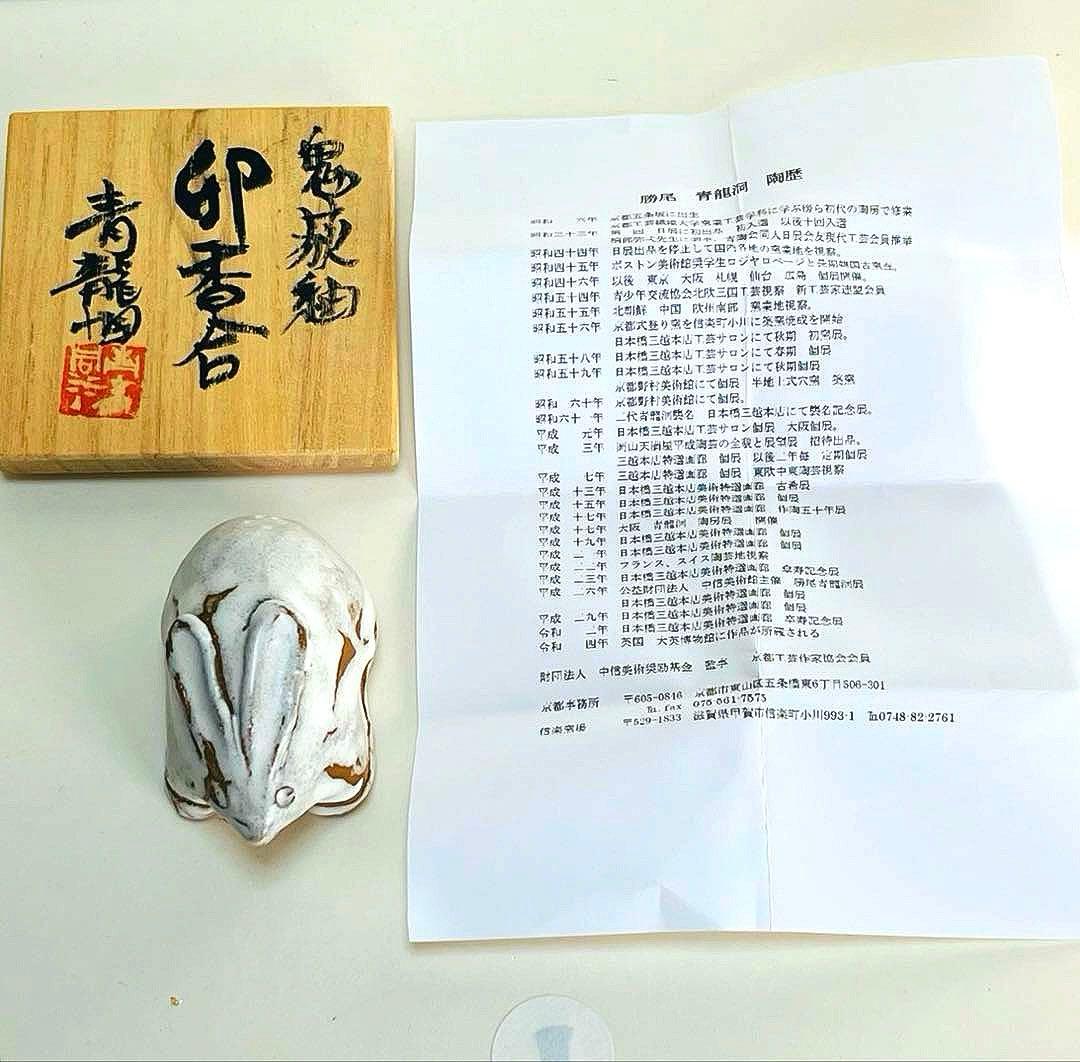 鬼萩釉
卯香合
青龍洞
勝尾 青龍洞 陶歴
昭和 六年 京都五条坂に出生
京都工芸繊維大学窯業工芸学科に学ぶ傍ら初代の陶房で修業
昭和三十三年 第 回 日展に初出品 初入選 以後十回入選
青陶会同人日展会友現代工芸会員推挙
昭和四十四年 日展出品を停止して国内各地の窯業地を視察。
昭和四十五年 ボストン美術館奨学生ロジャロページと長期韓国古窯
昭和四十六年 以後 東京 大阪 札幌 仙台 広島 個展開催。
昭和五十四年 青少年交流協会北欧三国工芸視察 新工芸家連盟会員
昭和五十五年 北朝鮮 中国 欧州南部 窯業地視察。
昭和五十六年 京都式登り窯を信楽町小川に築窯焼成を開始
日本橋三越本店工芸サロンにて秋期 初窯展。
昭和五十八年 日本橋三越本店工芸サロンにて春期 個展
昭和五十九年 日本橋三越本店工芸サロンにて秋期個展
京都野村美術館にて個展 半地上式穴窯 築窯
昭和 六十年 京都野村美術館にて個展。
昭和六十一年 二代青龍洞襲名 日本橋三越本店にて襲名記念展。
平成 元年 日本橋三越本店工芸サロン個展 大阪個展。
平成 三年 岡山天満屋平成陶芸の全貌と展望展 招待出品。
三越本店特選画廊 個展 以後二年毎 定期個展
平成 七年 三越本店特選画廊 個展 東欧中東陶芸視察
平成 十三年 日本橋三越本店美術特選画廊 古希展
平成 十五年 日本橋三越本店美術特選画廊 個展
平成 十七年 日本橋三越本店美術特選画廊 作陶五十年展
平成 十七年 大阪 青龍洞 陶房展 開催
平成 十九年 日本橋三越本店美術特選画廊 個展
平成 二一年 日本橋三越本店美術特選画廊 個展
平成 二二年 フランス、スイス陶芸地視察
平成 二三年 日本橋三越本店美術特選画廊 傘寿記念展
平成 二六年 公益財団法人 中信美術館主催 勝尾青龍洞展
日本橋三越本店美術特選画廊 個展
平成 二九年 日本橋三越本店美術特選画廊 個展
令和 二年 日本橋三越本店美術特選画廊 卒寿記念展
令和 四年 英国 大英博物館に作品が所蔵される
財団法人 中信美術奨励基金 監事 京都工芸作家協会会員
京都事務所 〒605-0846 京都市東山区五条橋東6丁目506-301
℡. fax 075-561-7573
信楽窯場 〒529-1833 滋賀県甲賀市信楽町小川993-1 ℡0748-82-2761